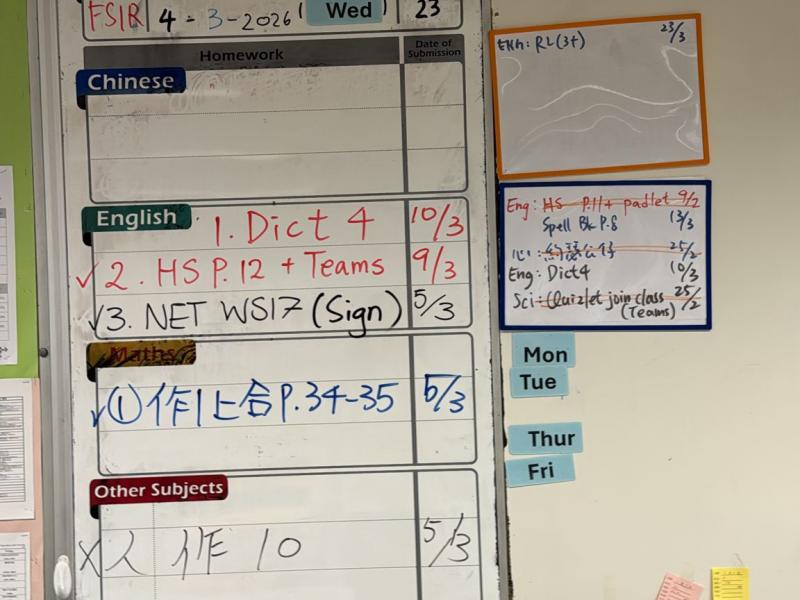 FSIR 4-3-2026 Wed 23
Homework Date of Submission
Chinese
English
1. Dict 4 10/3
✓2. HS P.12 + Teams 9/3
✓3. NET WS17 (Sign) 5/3
Maths
✓① 作1上合P.34-35 5/3
Other Subjects
X人 作 10 5/3
Eng: RL(3+) 23/3
Eng: HS P.11+ padlet 9/2
Spell Bk P.8 13/3
25/2
Eng: Dict4 10/3
Sci: Quizlet join class 25/2
(Teams)
Mon
Tue
Thur
Fri